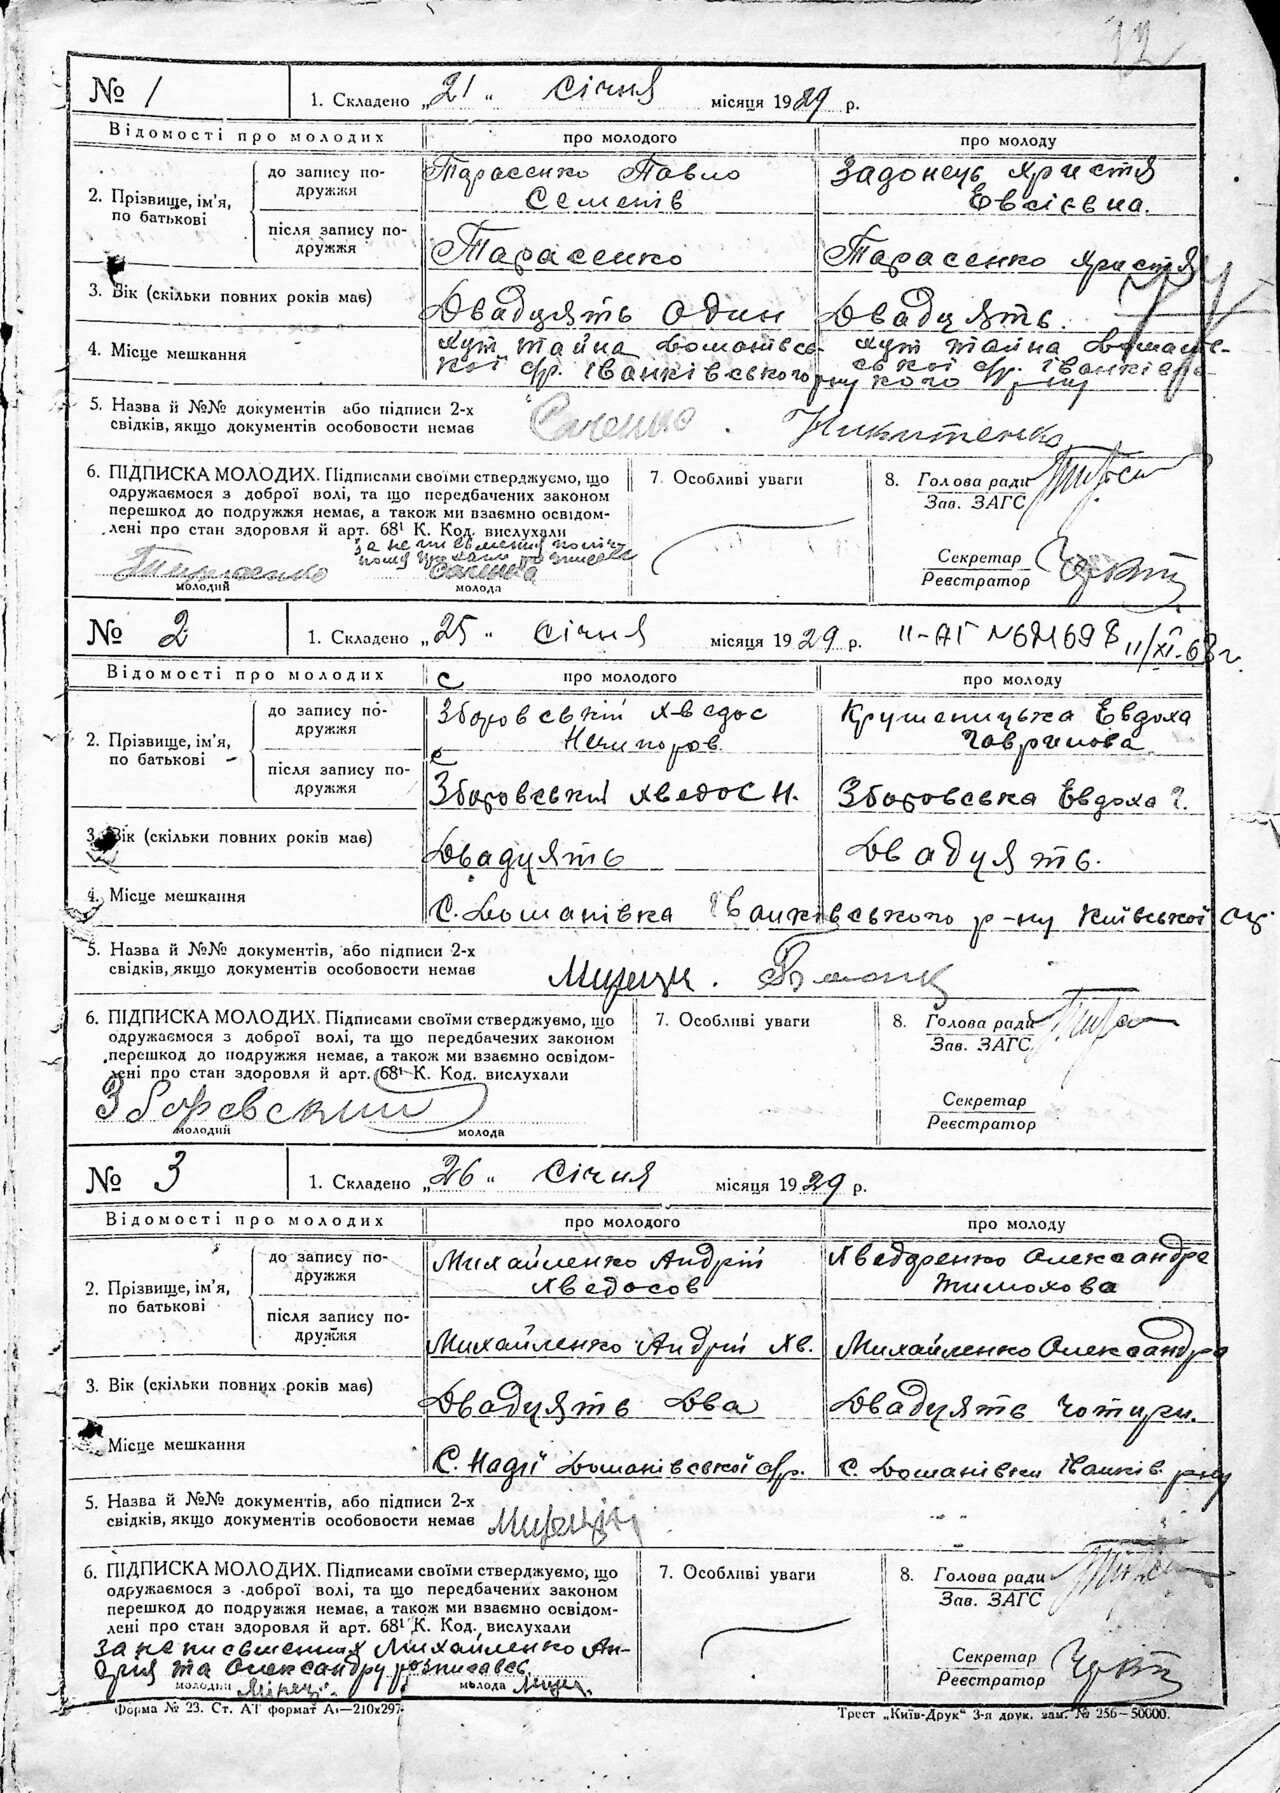 12
№ 1
1. Складено „21" січня місяця 1929 р.
Відомості про молодих
про молодого
про молоду
2. Прізвище, ім'я, по батькові
до запису подружжя
Тарасенко Павло
Семенів
Задонець Христя
Евсієвна.
після запису подружжя
Тарасенко
Тарасенко Христя
3. Вік (скільки повних років має)
Двадцять один
Двадцять.
4. Місце мешкання
хут Тайна Доманівсь-
кої с/р. Іванківського р-ну
хут Тайна Доманів-
ської с/р. Іванківсь-
кого р-ну
5. Назва й №№ документів або підписи 2-х
свідків, якщо документів особовости немає
Саченко. Никитенко
6. ПІДПИСКА МОЛОДИХ. Підписами своїми стверджуємо, що
одружаємося з доброї волі, та що передбачених законом
перешкод до подружжя немає, а також ми взаємно освідом-
лені про стан здоровля й арт. 68¹ К. Код. вислухали
Тарасенко
молодий
молода
7. Особливі уваги
8. Голова ради
Зав. ЗАГС
Секретар
Реєстратор
№ 2
1. Складено „25" січня місяця 1929 р.
Відомості про молодих
про молодого
про молоду
2. Прізвище, ім'я, по батькові
до запису подружжя
с
Зборовській Хведос
Нечипоров
Крушеницька Евдоха
Гаврилова
після запису подружжя
с
Зборовський Хведос Н.
Зборовська Евдоха Г.
3. Вік (скільки повних років має)
Двадцять
Двадцять.
4. Місце мешкання
С. Доманівка Іванківського р-ну Київської окр.
5. Назва й №№ документів, або підписи 2-х
свідків, якщо документів особовости немає
6. ПІДПИСКА МОЛОДИХ. Підписами своїми стверджуємо, що
одружаємося з доброї волі, та що передбачених законом
перешкод до подружжя немає, а також ми взаємно освідом-
лені про стан здоровля й арт. 68¹ К. Код. вислухали
Зборовский
молодий
молода
7. Особливі уваги
8. Голова ради
Зав. ЗАГС
Секретар
Реєстратор
№ 3
1. Складено „26" січня місяця 1929 р.
Відомості про молодих
про молодого
про молоду
2. Прізвище, ім'я, по батькові
до запису подружжя
Михайленко Андрій
Хведосов
Хведоренко Олександра
Тимохова
після запису подружжя
Михайленко Андрій Хв.
Михайленко Олександра
3. Вік (скільки повних років має)
Двадцять два
Двадцять чотири.
Місце мешкання
С. Надії Доманівської с/р.
с. Доманівки Іванків. р-ну
5. Назва й №№ документів, або підписи 2-х
свідків, якщо документів особовости немає
6. ПІДПИСКА МОЛОДИХ. Підписами своїми стверджуємо, що
одружаємося з доброї волі, та що передбачених законом
перешкод до подружжя немає, а також ми взаємно освідом-
лені про стан здоровля й арт. 68¹ К. Код. вислухали
за неписьменних Михайленко Ан-
дрія та Олександру розписавсь
молодий
молода
7. Особливі уваги
8. Голова ради
Зав. ЗАГС
Секретар
Реєстратор
Форма № 23. Ст. АТ формат А₄—210x297.
Трест „Київ-Друк" 3-я друк. зам. № 256—50000.